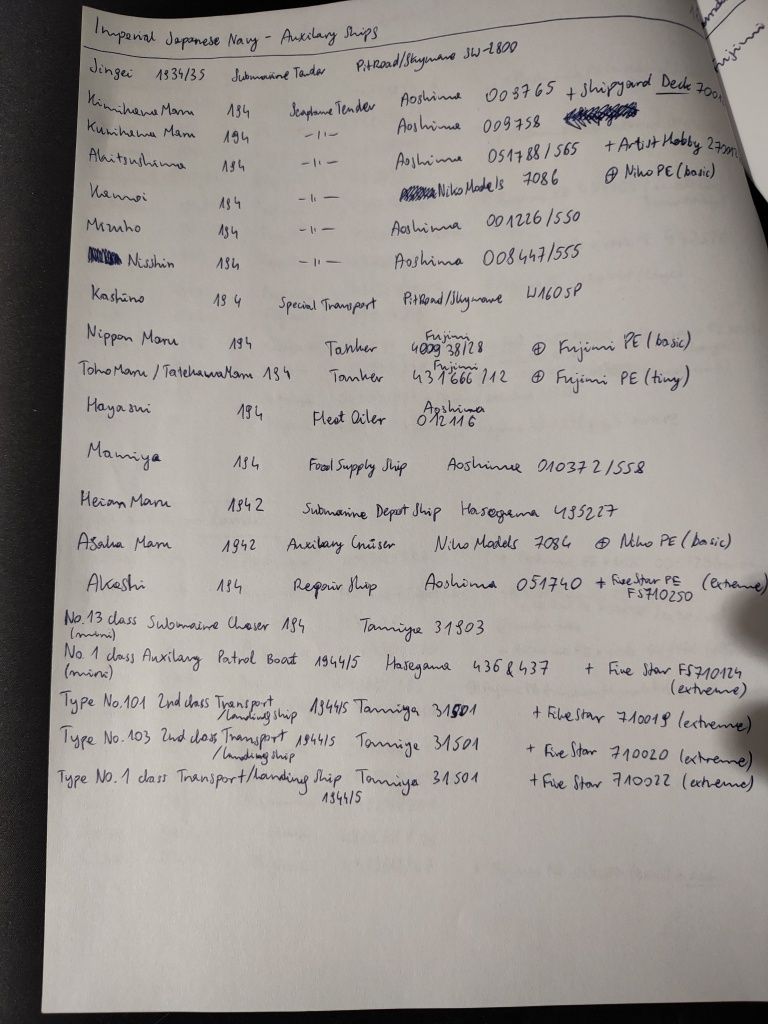 Imperial Japanese Navy - Auxilary Ships
Jingei 1934/35 Submarine Tender PitRoad/Skywave SW-2800
Kimikawa Maru 194 Seaplane Tender Aoshima 009765 + Shipyard Deck 7001
Kunikawa Maru 194 -11- Aoshima 009758
Akitsushima 194 -11- Aoshima 051788/565 + Artist Hobby
Kamoi 194 -11- Niko Models 7086 ⊕ Niko PE (basic)
Mizuho 194 -11- Aoshima 001226/550
Nisshin 194 -11- Aoshima 008447/555
Kashino 194 Special Transport PitRoad/Skywave W160SP
Nippon Maru 194 Tanker Fujimi 400938/28 ⊕ Fujimi PE (basic)
Toho Maru / Tatekawa Maru 194 Tanker Fujimi 431666/12 ⊕ Fujimi PE (tiny)
Hayasui 194 Fleet Oiler Aoshima 012116
Mamiya 194 Food Supply Ship Aoshima 010372/558
Heian Maru 1942 Submarine Depot Ship Hasegawa 495227
Asaka Maru 1942 Auxilary Cruiser Niko Models 7084 ⊕ Niko PE (basic)
Akashi 194 Repair Ship Aoshima 051740 + Five Star PE FS710250 (extreme)
No.13 class Submarine Chaser 194 Tamiya 31903
(mini)
No. 1 class Auxilary Patrol Boat 1944/5 Hasegawa 436 & 437 + Five Star FS710124
(mini) (extreme)
Type No.101 2nd class Transport 1944/5 Tamiya 31501 + Five Star 710019 (extreme)
/landing ship
Type No. 103 2nd class Transport 1944/5 Tamiya 31501 + Five Star 710020 (extreme)
/landing ship
Type No. 1 class Transport/Landing Ship Tamiya 31501 + Five Star 710022 (extreme)
1944/5
Fujimi